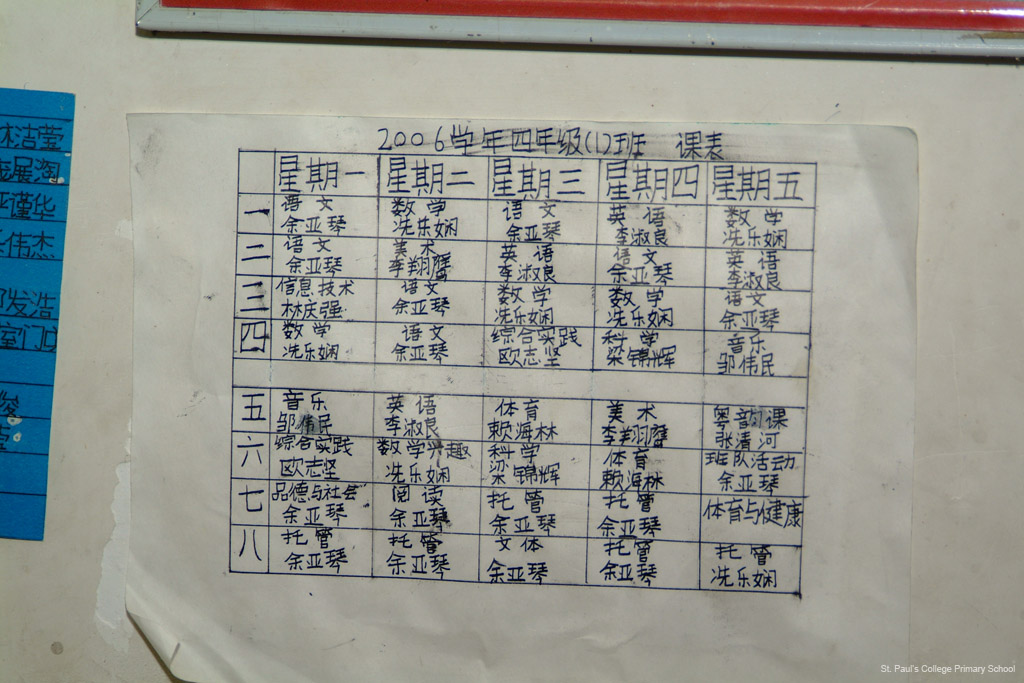 2006学年四年级(1)班 课表
星期一 星期二 星期三 星期四 星期五
一 语文 数学 语文 英语 数学
余亚琴 冼乐娴 余亚琴 李淑良 冼乐娴
二 语文 美术 英语 语文 英语
余亚琴 李翔鹰 李淑良 余亚琴 李淑良
三 信息技术 语文 数学 数学 语文
林庆强 余亚琴 冼乐娴 冼乐娴 余亚琴
四 数学 语文 综合实践 科学 音乐
冼乐娴 余亚琴 欧志坚 梁锦辉 邹伟民
五 音乐 英语 体育 美术 粤韵课
邹伟民 李淑良 赖海林 李翔鹰 张清河
六 综合实践 数学兴趣 科学 体育 班队活动
欧志坚 冼乐娴 梁锦辉 赖海林 余亚琴
七 品德与社会 阅读 托管 托管 体育与健康
余亚琴 余亚琴 余亚琴 余亚琴
八 托管 托管 文体 托管 托管
余亚琴 余亚琴 余亚琴 余亚琴 冼乐娴
林洁莹
展淘
谨华
伟杰
发浩
室门口
St. Paul's College Primary School